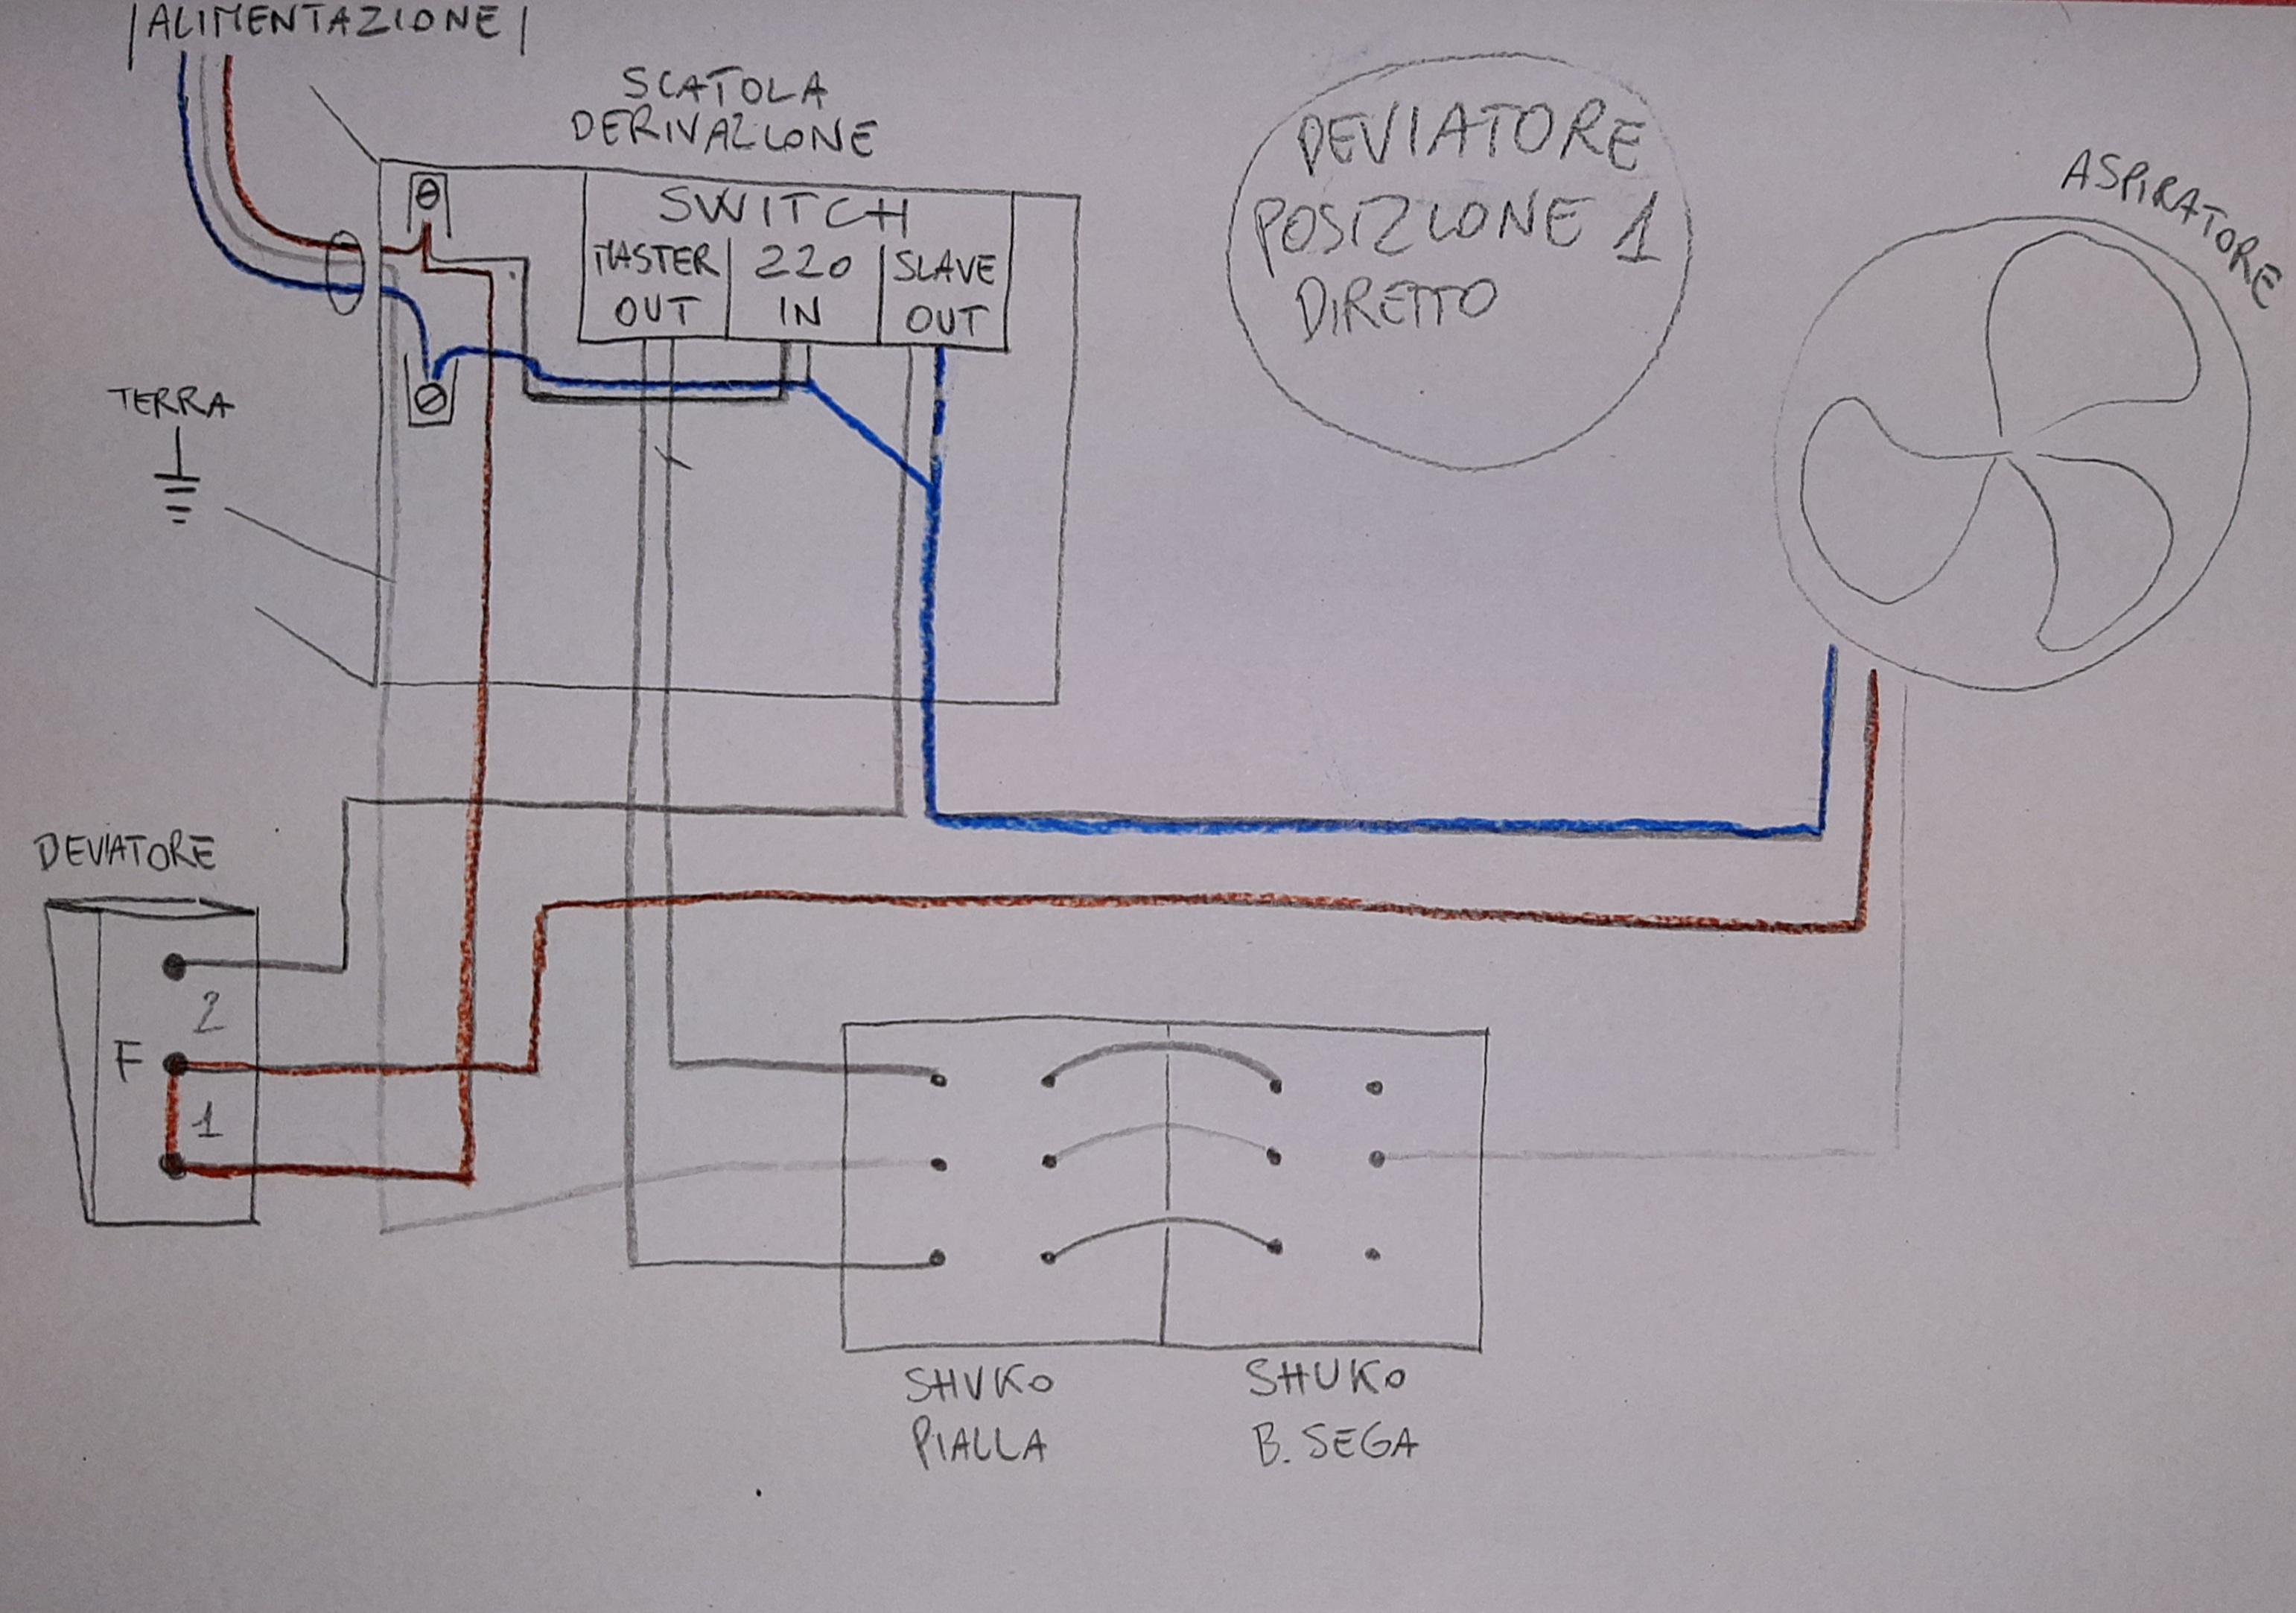 ALIMENTAZIONE
SCATOLA
DERIVAZIONE
SWITCH
MASTER
OUT
220
IN
SLAVE
OUT
DEVIATORE
POSIZIONE 1
DIRETTO
ASPIRATORE
TERRA
DEVIATORE
2
F
1
SHUKO
PIALLA
SHUKO
B. SEGA